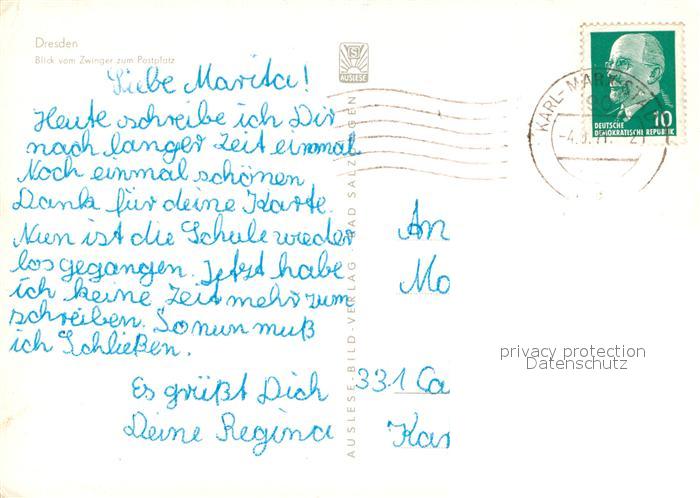 Dresden
Blick vom Zwinger zum Postplatz
AUSLESE
Liebe Marita!
Heute schreibe ich Dir
nach langer Zeit einmal
Noch einmal schönen
Dank für deine Karte.
Nun ist die Schule wieder
losgegangen. Jetzt habe
ich keine Zeit mehr zum
schreiben. So nun muß
ich Schließen.
Es grüßt Dich
Deine Regina
AUSLESE-BILD-VERLAG BAD SALZUNGEN
KARL-MARX-
10
DEUTSCHE
DEMOKRATISCHE REPUBLIK
An
Mo
331 Ca
Kar
privacy protection
Datenschutz